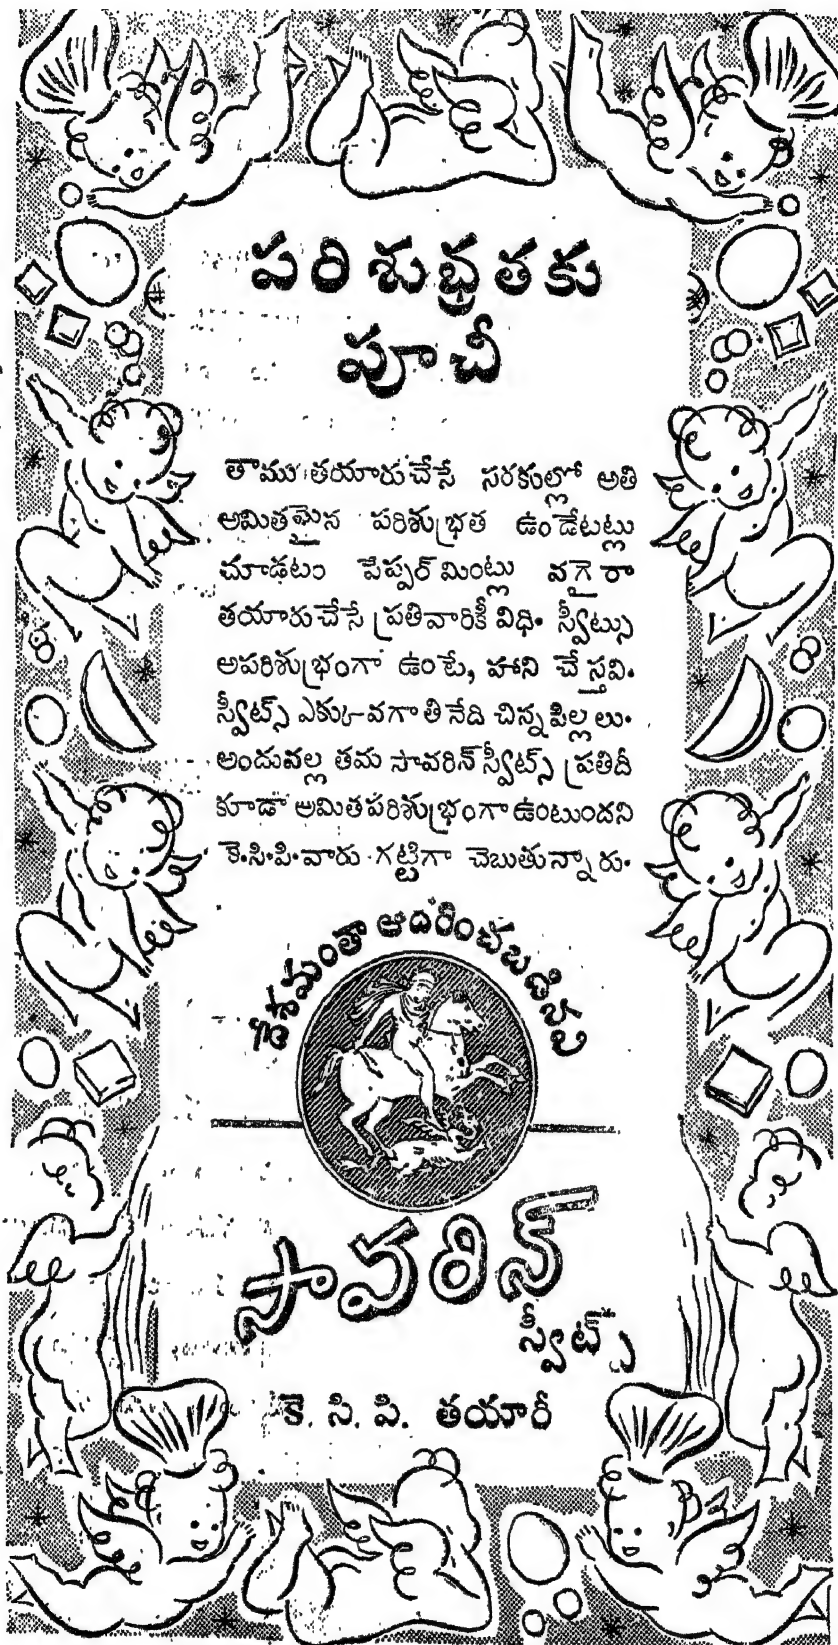 పరిశుభ్రతకు
పూచీ
తాము తయారుచేసే సరకుల్లో అతి
అమితమైన పరిశుభ్రత ఉండేటట్లు
చూడటం పేప్పర్‌మింట్లు వగైరా
తయారుచేసే ప్రతివారికీ విధి. స్వీట్సు
అపరిశుభ్రంగా ఉంటే, హాని చేస్తవి.
స్వీట్స్ ఎక్కువగా తినేది చిన్నపిల్లలు.
అందువల్ల తమ సావరిన్ స్వీట్స్ ప్రతిదీ
కూడా అమితపరిశుభ్రంగా ఉంటుందని
కె.సి.పి.వారు గట్టిగా చెబుతున్నారు.
దేశమంతా ఆదరించబడినవి
సావరిన్
స్వీట్స్
కె. సి. పి. తయారీ